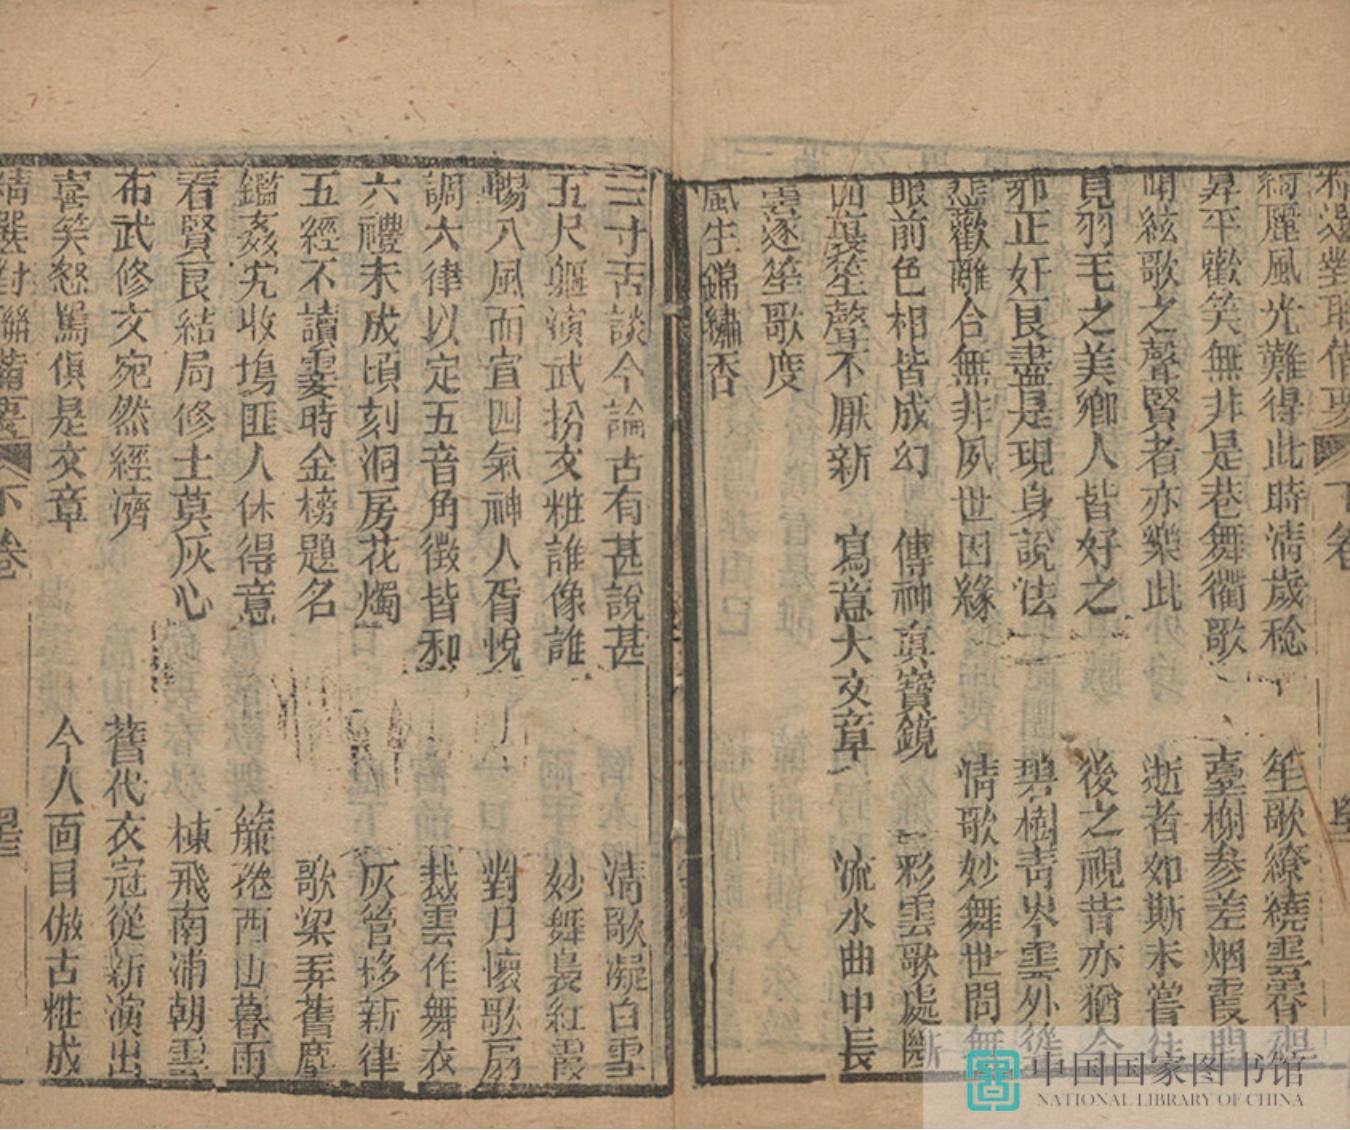 精選對聯備要 下卷
綺麗風光難得此時清歲稔 笙歌繚繞雲霄
昇平歡笑無非是巷舞衢歌 臺榭參差烟霞門
絃歌之聲賢者亦樂此 逝者如斯未嘗往
見羽毛之美鄉人皆好之 後之視昔亦猶今
邪正奸良盡是現身說法 碧樹青岑雲外
悲歡離合無非夙世因緣 情歌妙舞世間無
眼前色相皆成幻 傳神真寶鏡 彩雲歌處斷
笙聲不厭新 寫意大文章 流水曲中長
雲逐笙歌度
風生錦繡香
三寸舌談今論古有甚說甚 清歌凝白雪
五尺軀演武扮文粧誰像誰 妙舞裊紅霞
暢八風而宣四氣神人胥悅 對月懷歌扇
調六律以定五音角徵皆和 裁雲作舞衣
六禮未成頃刻洞房花燭 灰管移新律
五經不讀霎時金榜題名 歌梁弄舊塵
鑑姦宄收塲匪人休得意 簾捲西山暮雨
看賢良結局修士莫灰心 棟飛南浦朝雲
布武修文宛然經濟 舊代衣冠從新演出
喜笑怒罵俱是文章 今人面目倣古粧成
精選對聯備要 下卷
中国国家图书馆
NATIONAL LIBRARY OF CHINA